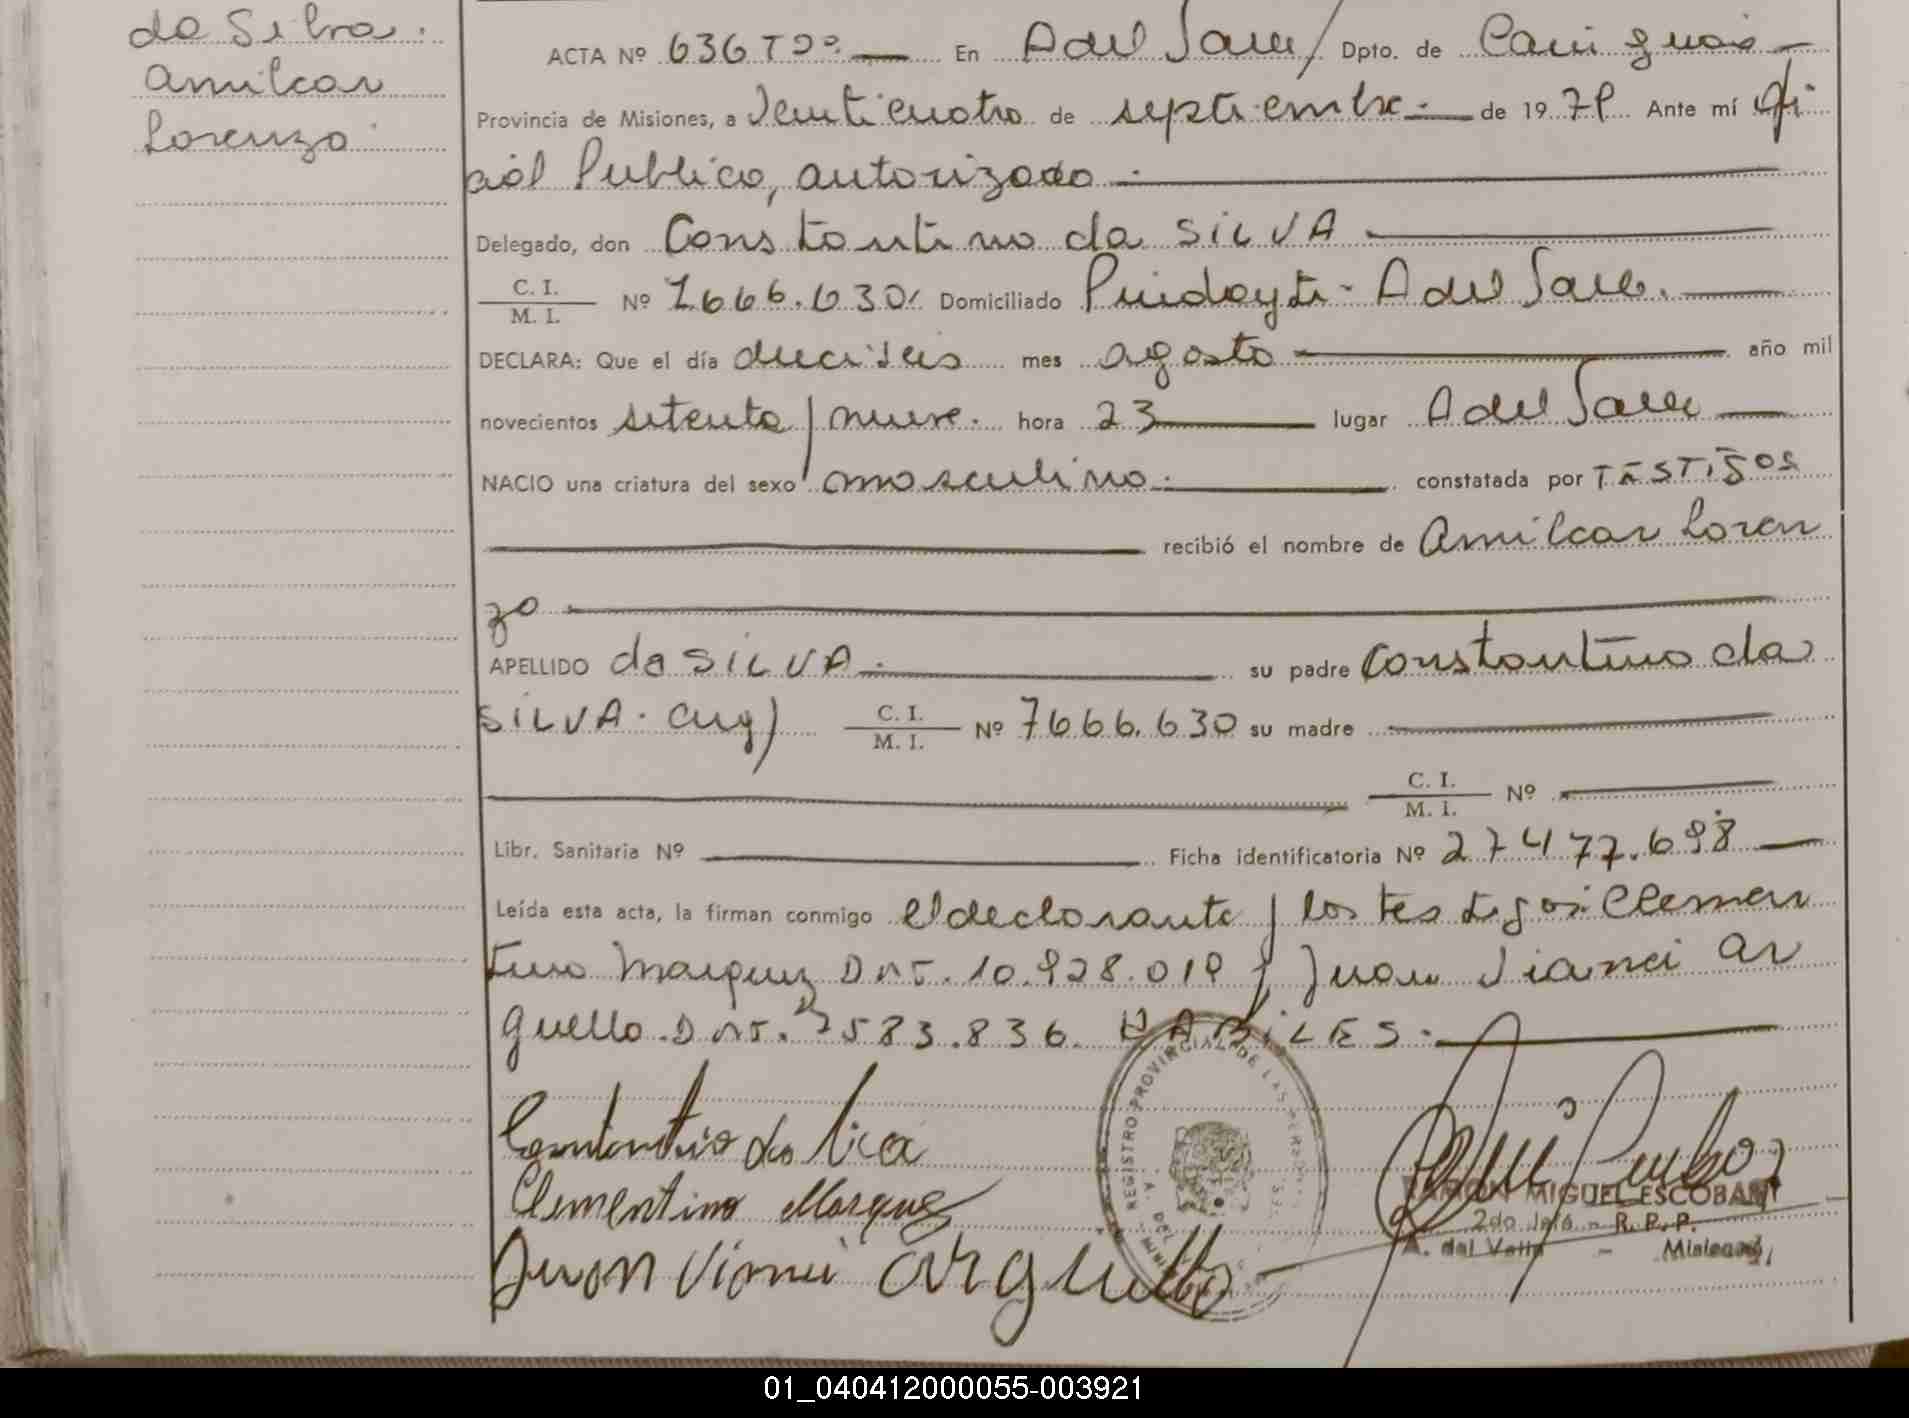 da Silva.
Amilcar
Lorenzo
ACTA Nº 636 Tº 2º En A del Valle Dpto. de Cainguás
Provincia de Misiones, a Veinticuatro de septiembre de 1979 Ante mí Ofi
cial Publico, autorizado
Delegado, don Constantino da SILVA
C. I.
M. I.
Nº 7.666.630 Domiciliado Pindayti - A del Valle.
DECLARA: Que el día dieciseis mes agosto año mil
novecientos setenta y nueve. hora 23 lugar A del Valle
NACIO una criatura del sexo masculino. constatada por TESTIGOS
recibió el nombre de Amilcar Loren
zo
APELLIDO da SILVA. su padre Constantino da
SILVA. arg)
C. I.
M. I.
Nº 7666.630 su madre
C. I.
M. I.
Nº
Libr. Sanitaria Nº Ficha identificatoria Nº 27477.698
Leída esta acta, la firman conmigo el declarante y los testigos: Clemen
tino Marquez DNI. 10.928.019 y Juan Vianei Ar
guello. DNI. 7583.836. HABILES.
Clementino Marquez
Juan Vianei Arguello
REGISTRO PROVINCIAL DE LAS PERSONAS
RAMON MIGUEL ESCOBAR
2do Jefe - R. P. P.
A. del Valle - Misiones
01_040412000055-003921